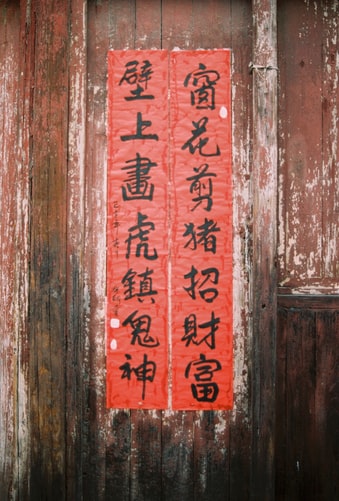 窗花剪猪招財富
壁上畫虎鎮鬼神